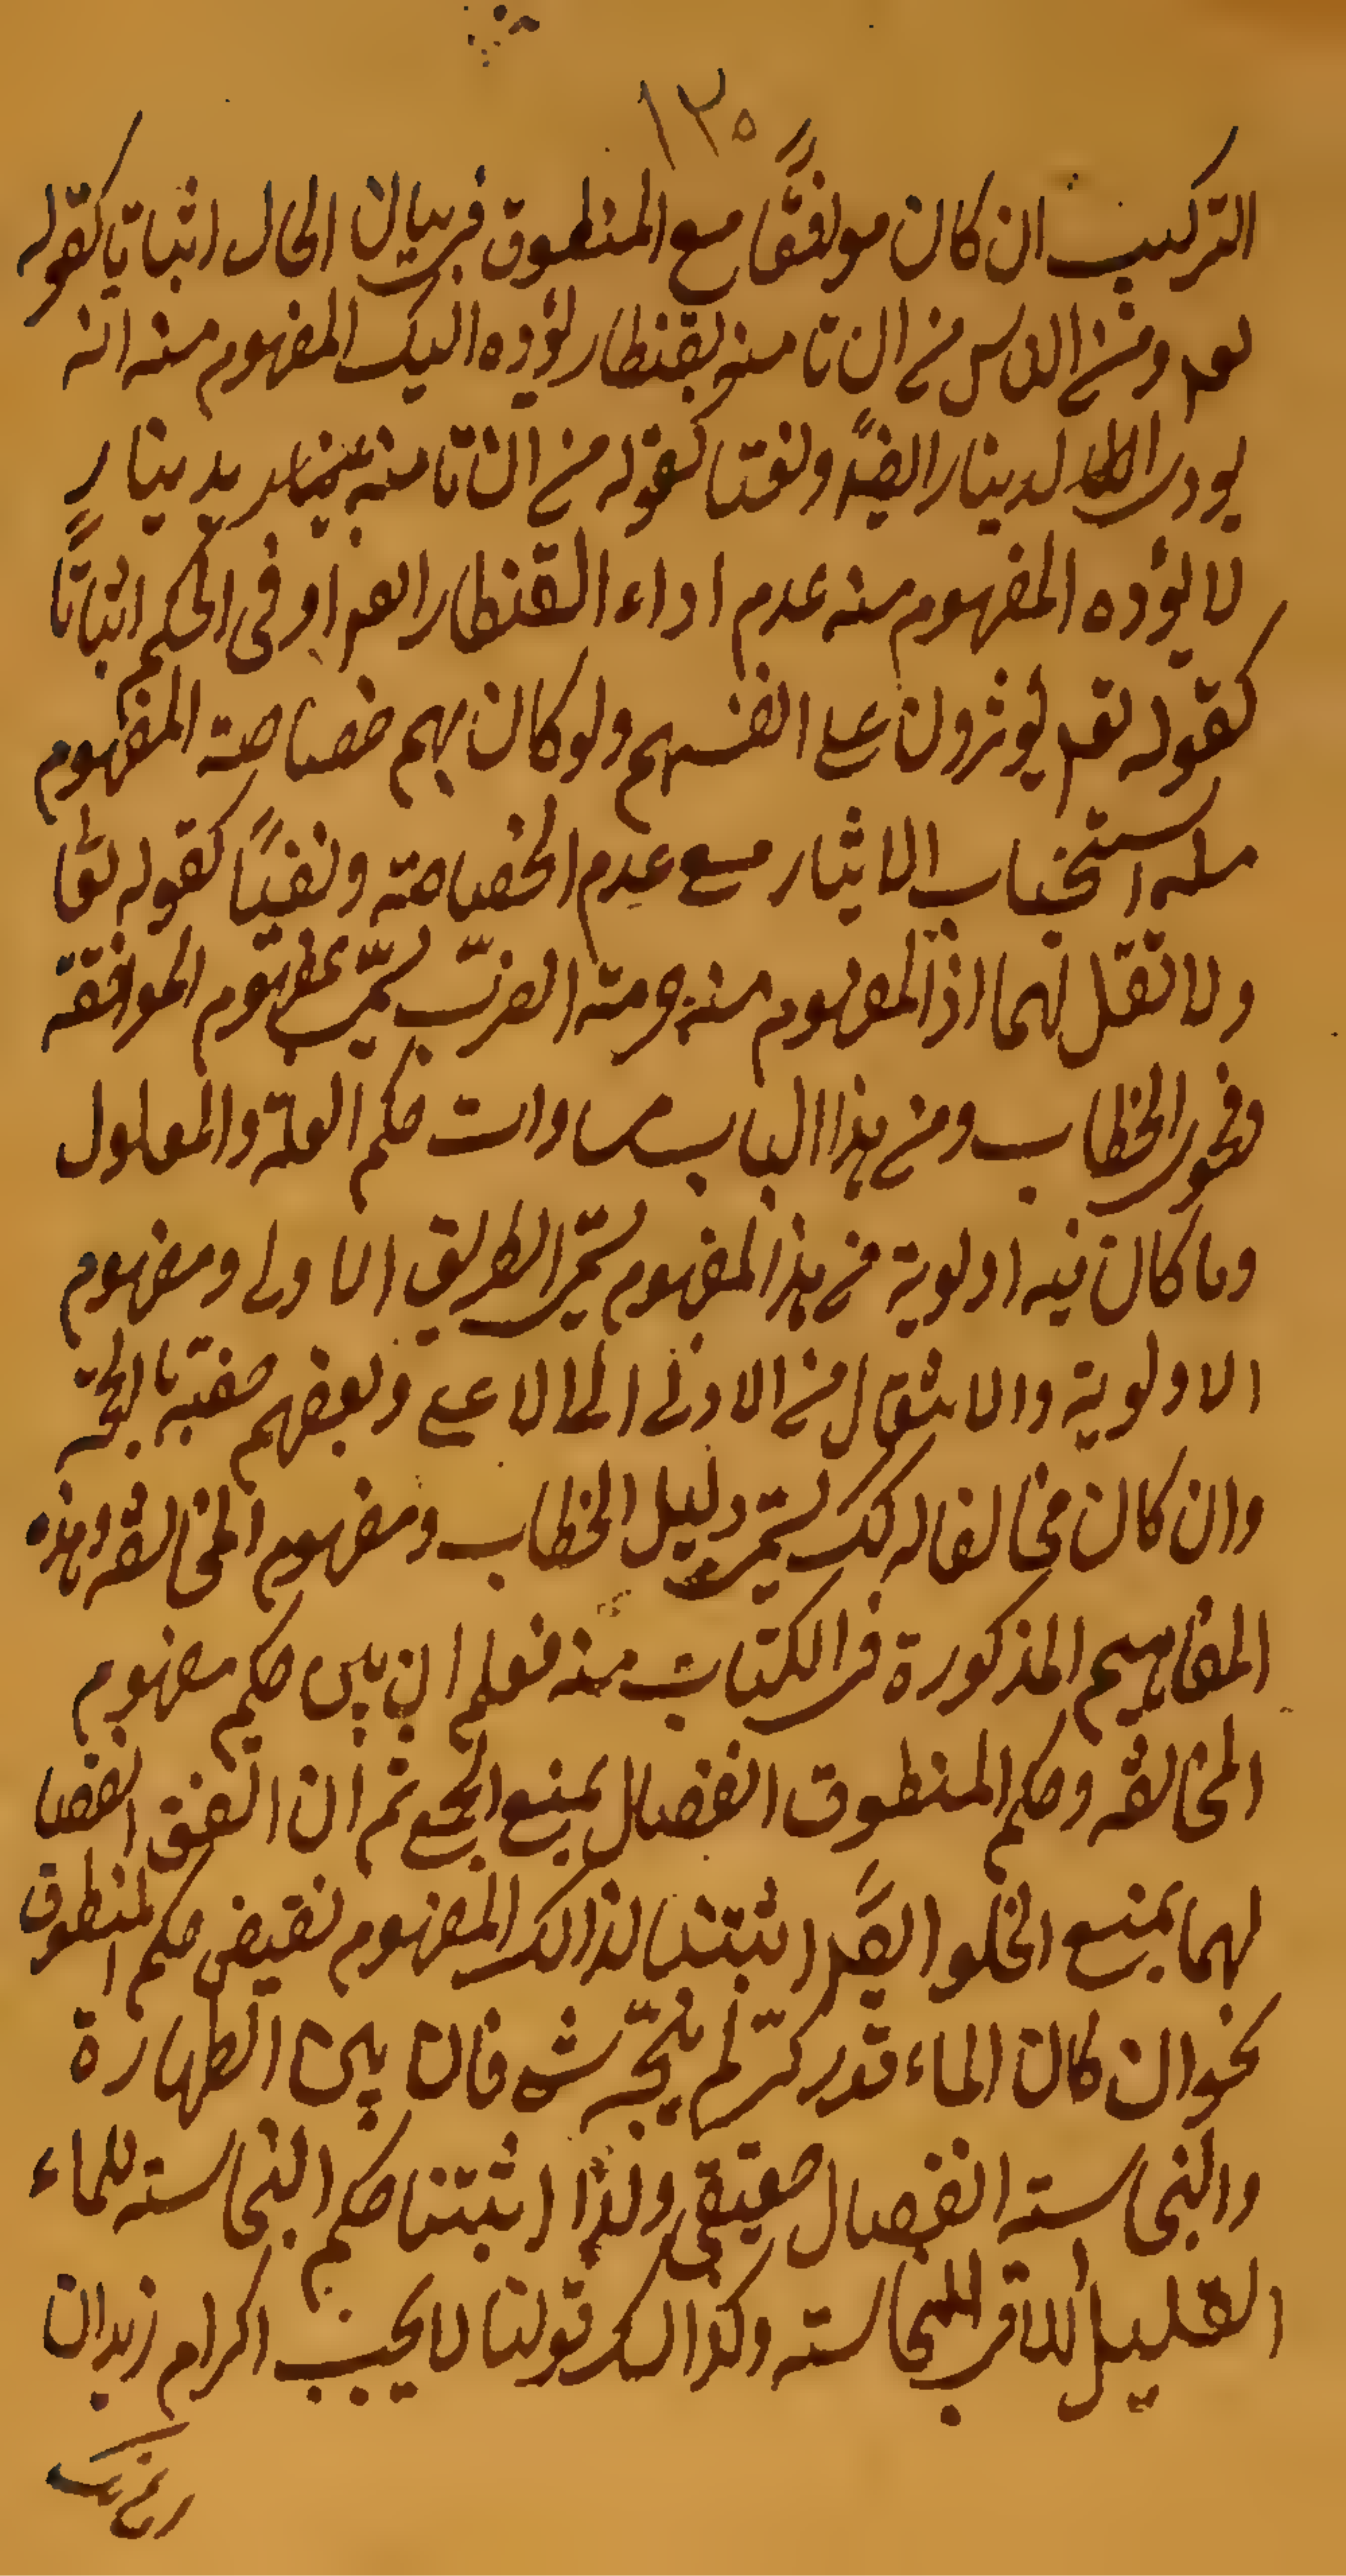 ١٣٥
التركيب ان كان موافقًا مع المنطوق في بيان الحال اثباتا كقوله
تعم ومن الناس من ان تامنه بقنطار يؤده اليك المفهوم منه انه
يودي الدينار ايضًا ونفيا كقوله من ان تامنه بدينار
لا يؤده المفهوم منه عدم اداء القنطار ايضا او في الحكم اثباتًا
كقوله تعم يوثرون على انفسهم ولو كان بهم خصاصة المفهوم
منه استحباب الايثار مع عدم الخصاصة ونفيًا كقوله تعا
ولا تقل لهما اف المفهوم منه حرمة الضرب يسمّى بمفهوم الموافقة
وفحوى الخطاب ومن هذا الباب مساوات حكم العلة والمعلول
وما كان فيه اولوية من هذا المفهوم يسمّى الطريق الاولى ومفهوم
الاولوية والانتقال من الادنى الى الاعلى وبعضهم
وان كان مخالفا له كك يسمّى دليل الخطاب ومفهوم المخالفة وهذه
المفاهيم المذكورة في الكتاب منه فعلم ان بين حكم مفهوم
المخالفة وحكم المنطوق انفصال بمنع الجمع ثم ان اتفق انفصا
لهما بمنع الخلو ايضًا اثبتنا لذالك المفهوم نقيض حكم المنطوق
نحو ان كان الماء قدر كرّ لم ينجّسه شئ فان بين الطهارة
والنجاسته انفصال حقيقي ولذا اثبتنا حكم النجاسته للماء
القليل الملاقي للنجاسته وكذالك قولنا لا يجب اكرام زيد ان